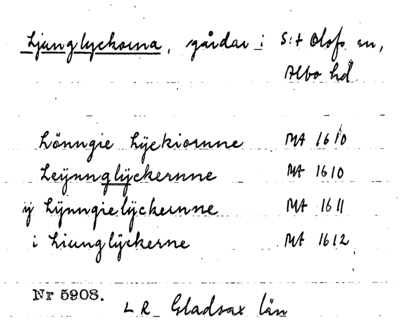 Ljunglyckorna, gårdar i S:t Olofs sn,
Albo hd
Lönngie Lyckiornne MA 1610
Leÿnnglÿckernne MA 1610
ÿ Lÿnngielÿckernne MA 1611
i Liunglÿckerne MA 1612
Nr 5908.
LR Gladsax län